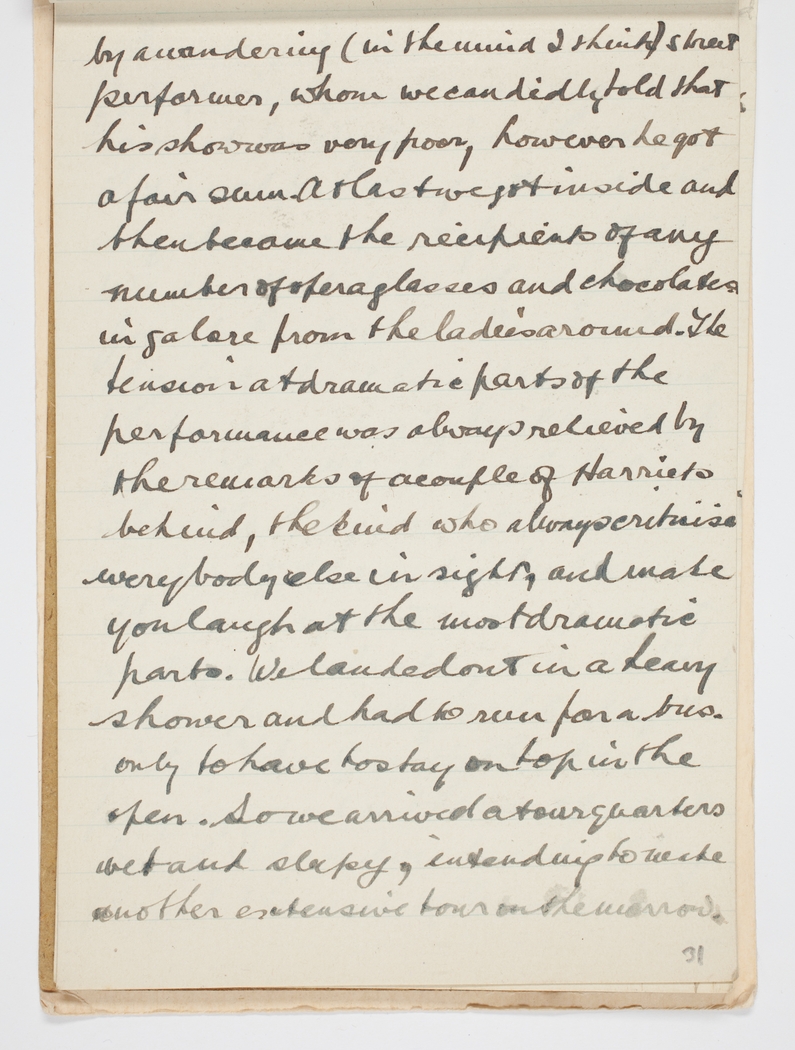 by a wandering (in the mind I think) street
performer, whom we candidly told that
his show was very poor, however he got
a fair sum. At last we got inside and
then became the recipients of any
number of operaglasses and chocolates
in galore from the ladies around. The
tension at dramatic parts of the
performance was always relieved by
the remarks of a couple of Harriets
behind, the kind who always criticise
everybody else in sight, and make
you laugh at the most dramatic
parts. We landed out in a heavy
shower and had to run for a bus.
only to have to stay on top in the
open. So we arrived at our quarters
wet and sleepy, intending to make
another extensive tour on the morrow.
31